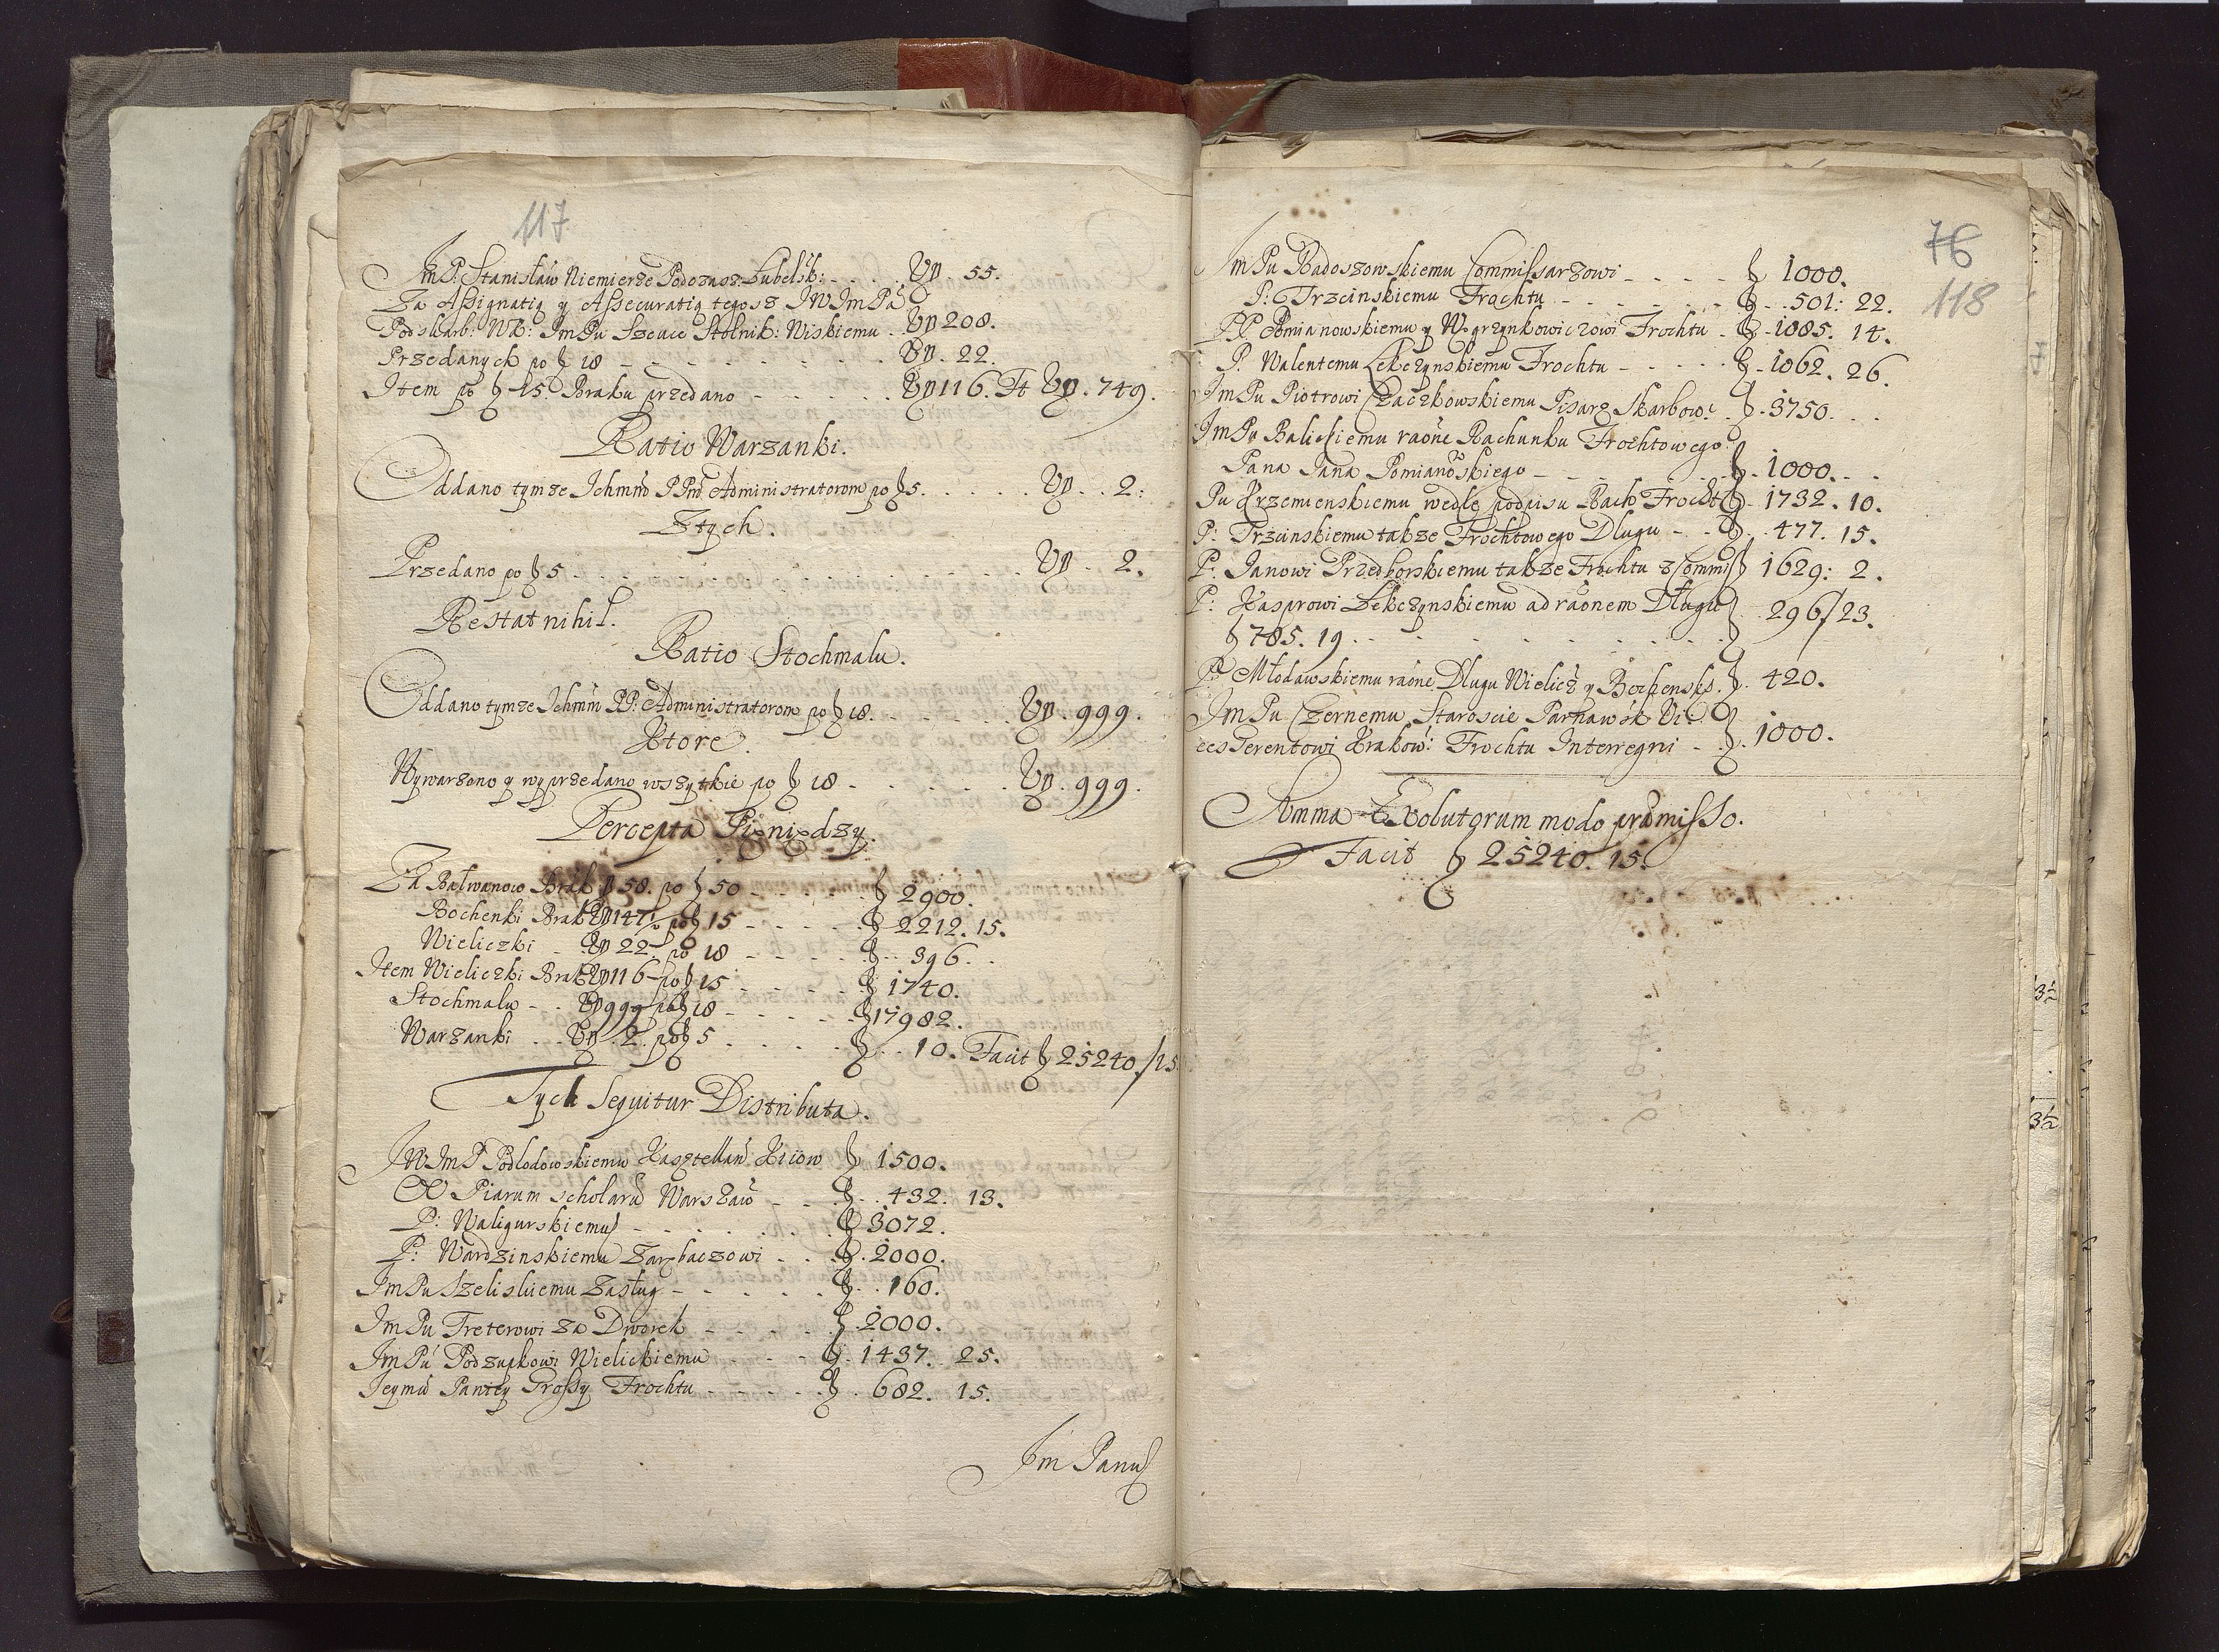 117
Im P. Stanisław Niemierze Podczasz. Lubelsk: - - - - Vn. 55.
Za Assignatią y Assecuratią tegosz JW Im Pa
Podskarb: WK: Im Pu Szeuce Stolnik: Wiskiemu - Vn 208.
Przedanych po f 18 - - - - Vn. 22.
Item po f 15. Braku przedano - - - - Vn 116. Ft Vn. 749.
Ratio Warzanki.
Oddano tymze Ichmm PPm Administratorom po f 5. . . . . Vn . . 2:
Z tych.
Przedano po f 5 . . . . Vn . 2.
Restat nihil.
Ratio Stochmalu.
Oddano tymze Ichmm PP: Administratorom po f 18. - - - - Vn. 999.
Ktore.
Wywarzono y wyprzedano wszytkie po f 18 - - - - Vn. 999.
Percepta Pieniędzy.
Za Bałwanow Brak n 58. po f 50 - - - - f 2900.
Bochenki Brak Vn 147½ po f 15 - - - - f 2212. 15.
Wieliczki - Vn 22 - po 18 - - - - f . . 396. .
Item Wieliczki Brak Vn 116 - po f 15 - - - - f 1740.
Stochmalu - - Vn 999 - po f 18 - - - - f 17982.
Warzanki . . Vn . 2. po f 5 . . . . f . . 10. Facit f 25240./15.
Tych Sequitur Distributa.
JW Im P Podlodowskiemu Kasztellan Kiiow f 1500.
OO Piarum scholaru Warszaw - - f . . 432. 13.
P: Waligurskiemu - - - - f 3072.
P: Wardzinskiemu Zarzbaczowi - - f. 2000.
Im Pu Szeliskiemu Zasług - - - - f . . 160.
Im Pu Treterowi za Dworek - - - - f. 2000.
Im Pu Podzupkowi Wielickiemu - - - f. 1437. 25.
Jeymu Paniey Grossy Frochtu - - - - f. 682. 15.
Im Panu
76
118
Im Pu Radoszowskiemu Commissarzowi - - - - f 1000.
P: Trzcinskiemu Frochtu - - - - f. . 501: 22.
PP Pomianowskiemu y Węgrzynkowiczowi Frochtu - f. 1885. 14.
P. Walentemu Lekczynskiemu Frochtu - - - - f. 1062. 26.
Im Pu Piotrowi Czaczkowskiemu Pisarz Skarbow: f. 3750. . .
Im Pu Balickiemu raone Rachunku Frochtowego
Pana Jana Pomianoskiego - - - - f. 1000. . .
Pu Krzemienskiemu wedle podpisu Rach Frocht f. 1732. 10.
P: Trzcinskiemu takze Frochtowego Dlugu - - f. . 477. 15.
P: Janowi Przedborskiemu takze Frochtu z Commis f 1629: 2.
P: Kasprowi Lekczynskiemu ad raonem Dlugu
f 785. 19. . - - - - f . . 296/23.
P: Młodawskiemu raone Dlugu Wielicz y Bochensk. f. 420.
Im Pu Czernemu Staroscie Parnawsk Vi-
ces Gerentowi Krakow: Frochtu Interregni - f. 1000.
Summa Exolutorum modo praemisso.
Facit f 25240. 15.